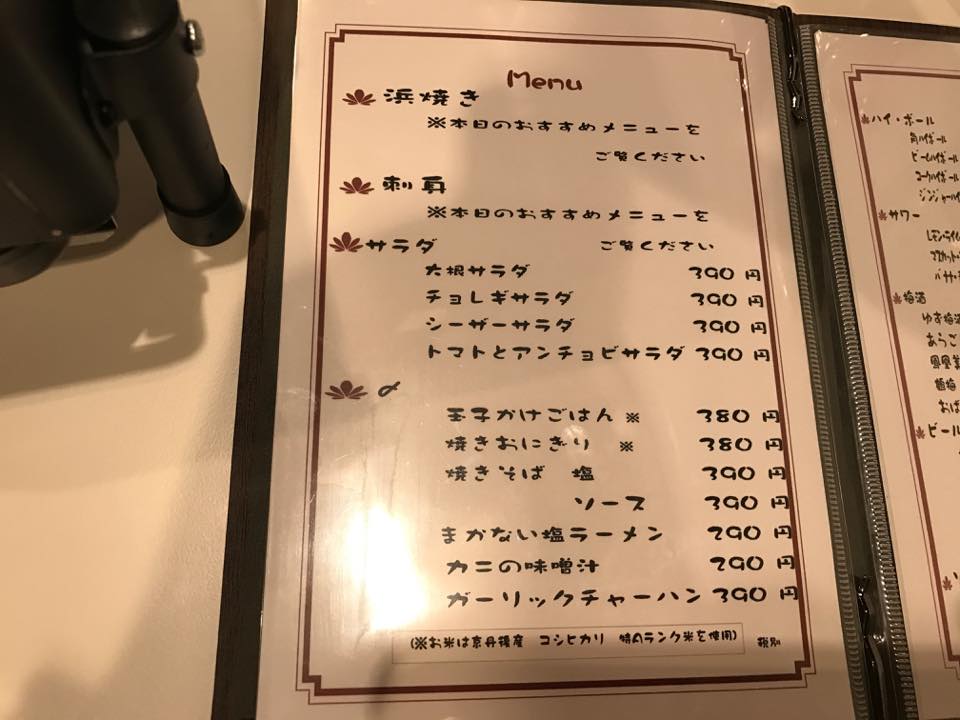 Menu
浜焼き
※本日のおすすめメニューを
ご覧ください
刺身
※本日のおすすめメニューを
ご覧ください
サラダ
大根サラダ 390 円
チョレギサラダ 390 円
シーザーサラダ 390 円
トマトとアンチョビサラダ 390 円
〆
玉子かけごはん ※ 380 円
焼きおにぎり ※ 380 円
焼きそば 塩 390 円
ソース 390 円
まかない塩ラーメン 290 円
カニの味噌汁 290 円
ガーリックチャーハン 390 円
(※お米は京丹後産 コシヒカリ 特Aランク米を使用) 税別
ハイ・ボール
角ハイボール
ビームハイボール
コークハイボール
サワー
梅酒
ゆず梅酒
あらご
ビール